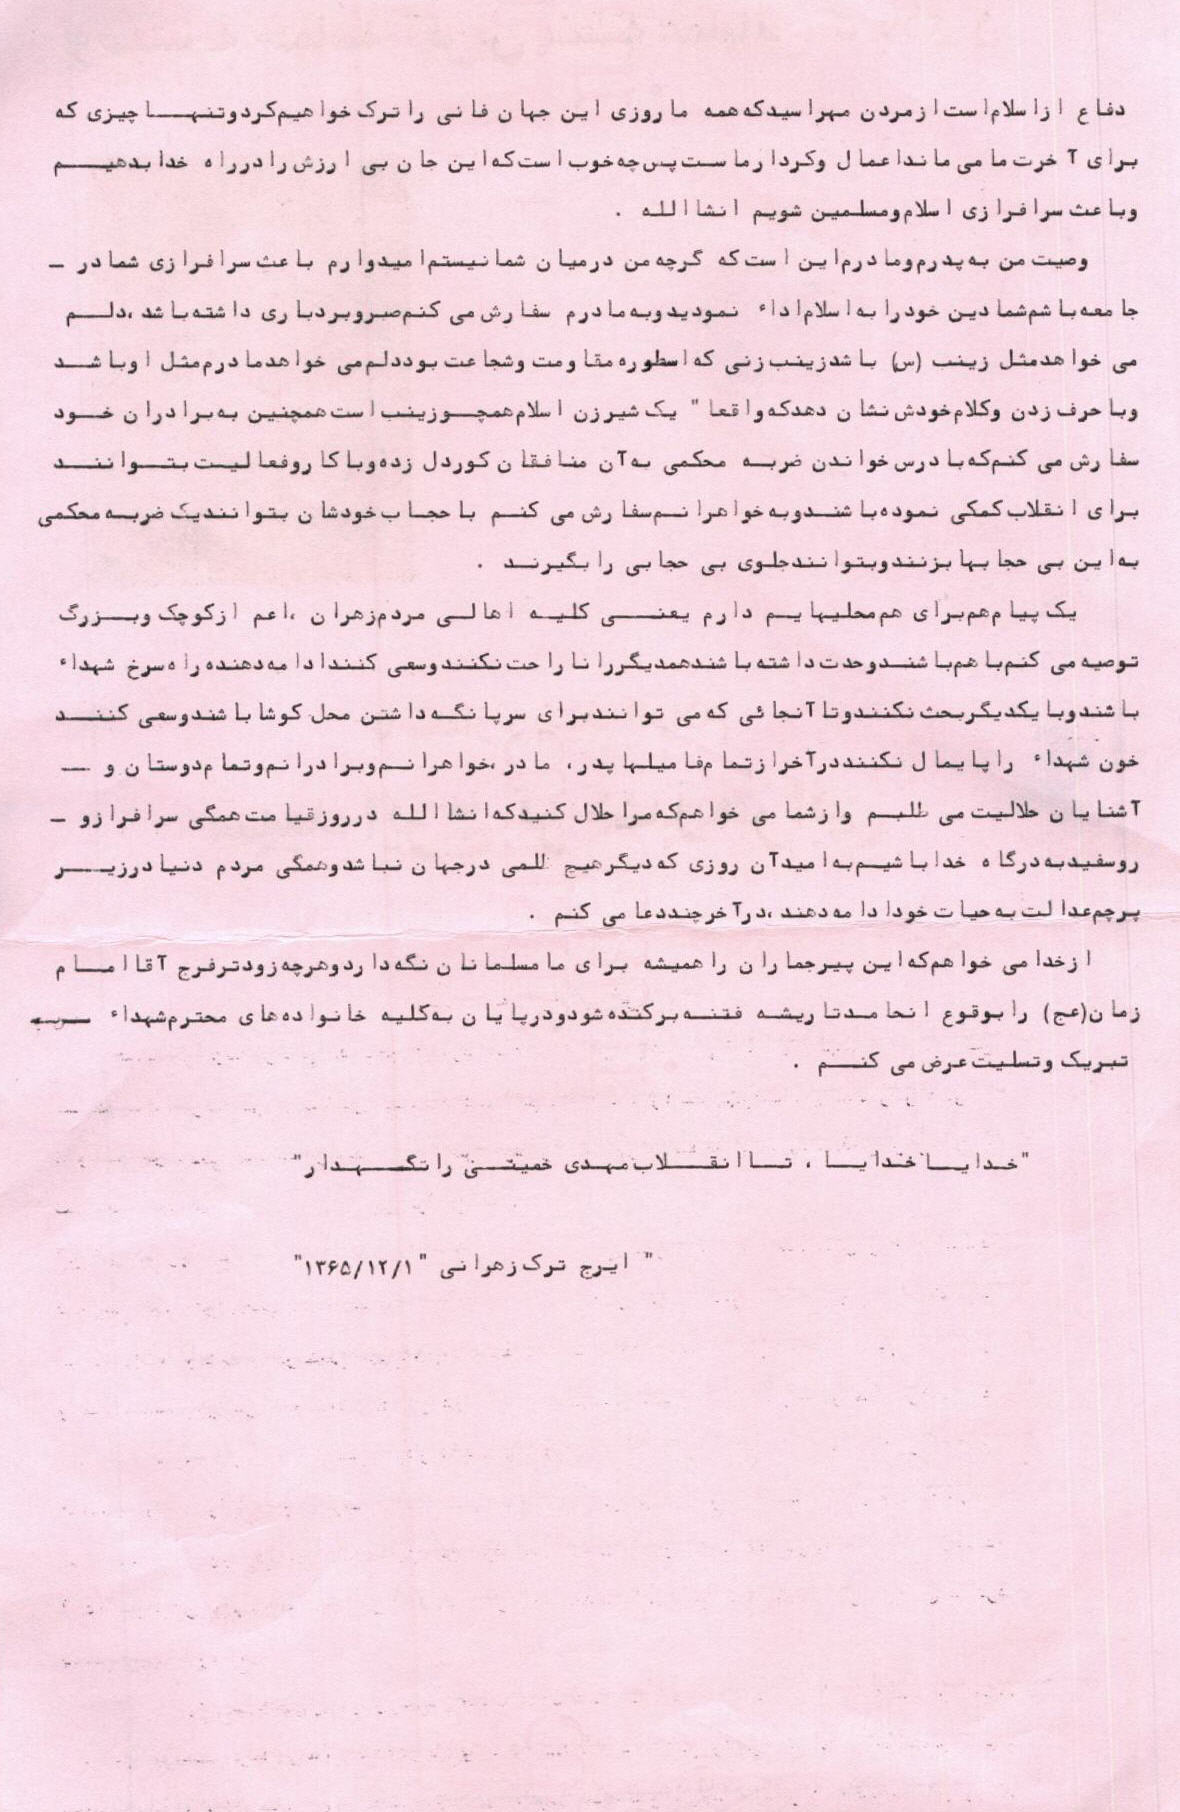 دفاع از اسلام است از مردن مهراسید که همه ما روزی این جهان فانی را ترک خواهیم کرد و تنها چیزی که
برای آخرت ما می ماند اعمال و کردار ماست پس چه خوب است که این جان بی ارزش را در راه خدا بدهیم
و باعث سرافرازی اسلام و مسلمین شویم انشاالله .
وصیت من به پدرم و مادرم این است که گرچه من در میان شما نیستم امیدوارم باعث سرافرازی شما در ـ
جامعه باشم شما دین خود را به اسلام اداء نمودید و به مادرم سفارش می کنم صبر و بردباری داشته باشد ، دلم
می خواهد مثل زینب (س) باشد زینب زنی که اسطوره مقاومت و شجاعت بود دلم می خواهد مادرم مثل او باشد
و با حرف زدن و کلام خودش نشان دهد که واقعا " یک شیرزن اسلام همچو زینب است همچنین به برادران خود
سفارش می کنم که با درس خواندن ضربه محکمی به آن منافقان کوردل زده و با کار و فعالیت بتوانند
برای انقلاب کمکی نموده باشند و به خواهرانم سفارش می کنم با حجاب خودشان بتوانند یک ضربه محکمی
به این بی حجابها بزنند و بتوانند جلوی بی حجابی را بگیرند .
یک پیام هم برای هم محلیهایم دارم یعنی کلیه اهالی مردم زهران ، اعم از کوچک و بزرگ
توصیه می کنم با هم باشند وحدت داشته باشند همدیگر را ناراحت نکنند و سعی کنند ادامه دهنده راه سرخ شهداء
باشند و با یکدیگر بحث نکنند و تا آنجائی که می توانند برای سرپا نگه داشتن محل کوشا باشند و سعی کنند
خون شهداء را پایمال نکنند در آخر از تمام فامیلها پدر ، مادر ، خواهرانم و برادرانم و تمام دوستان و ـ
آشنایان حلالیت می طلبم و از شما می خواهم که مرا حلال کنید که انشاالله در روز قیامت همگی سرافراز و ـ
روسفید به درگاه خدا باشیم به امید آن روزی که دیگر هیچ ظلمی در جهان نباشد و همگی مردم دنیا در زیر
پرچم عدالت به حیات خود ادامه دهند ، در آخر چند دعا می کنم .
از خدا می خواهم که این پیر جماران را همیشه برای ما مسلمانان نگه دارد و هر چه زودتر فرج آقا امام
زمان (عج) را بوقوع انجامد تا ریشه فتنه برکنده شود و در پایان به کلیه خانواده های محترم شهداء
تبریک و تسلیت عرض می کنم .
"خدایا خدایا ، تا انقلاب مهدی خمینی را نگهدار"
" ایرج ترک زهرانی " ۱۳۶۵/۱۲/۱"